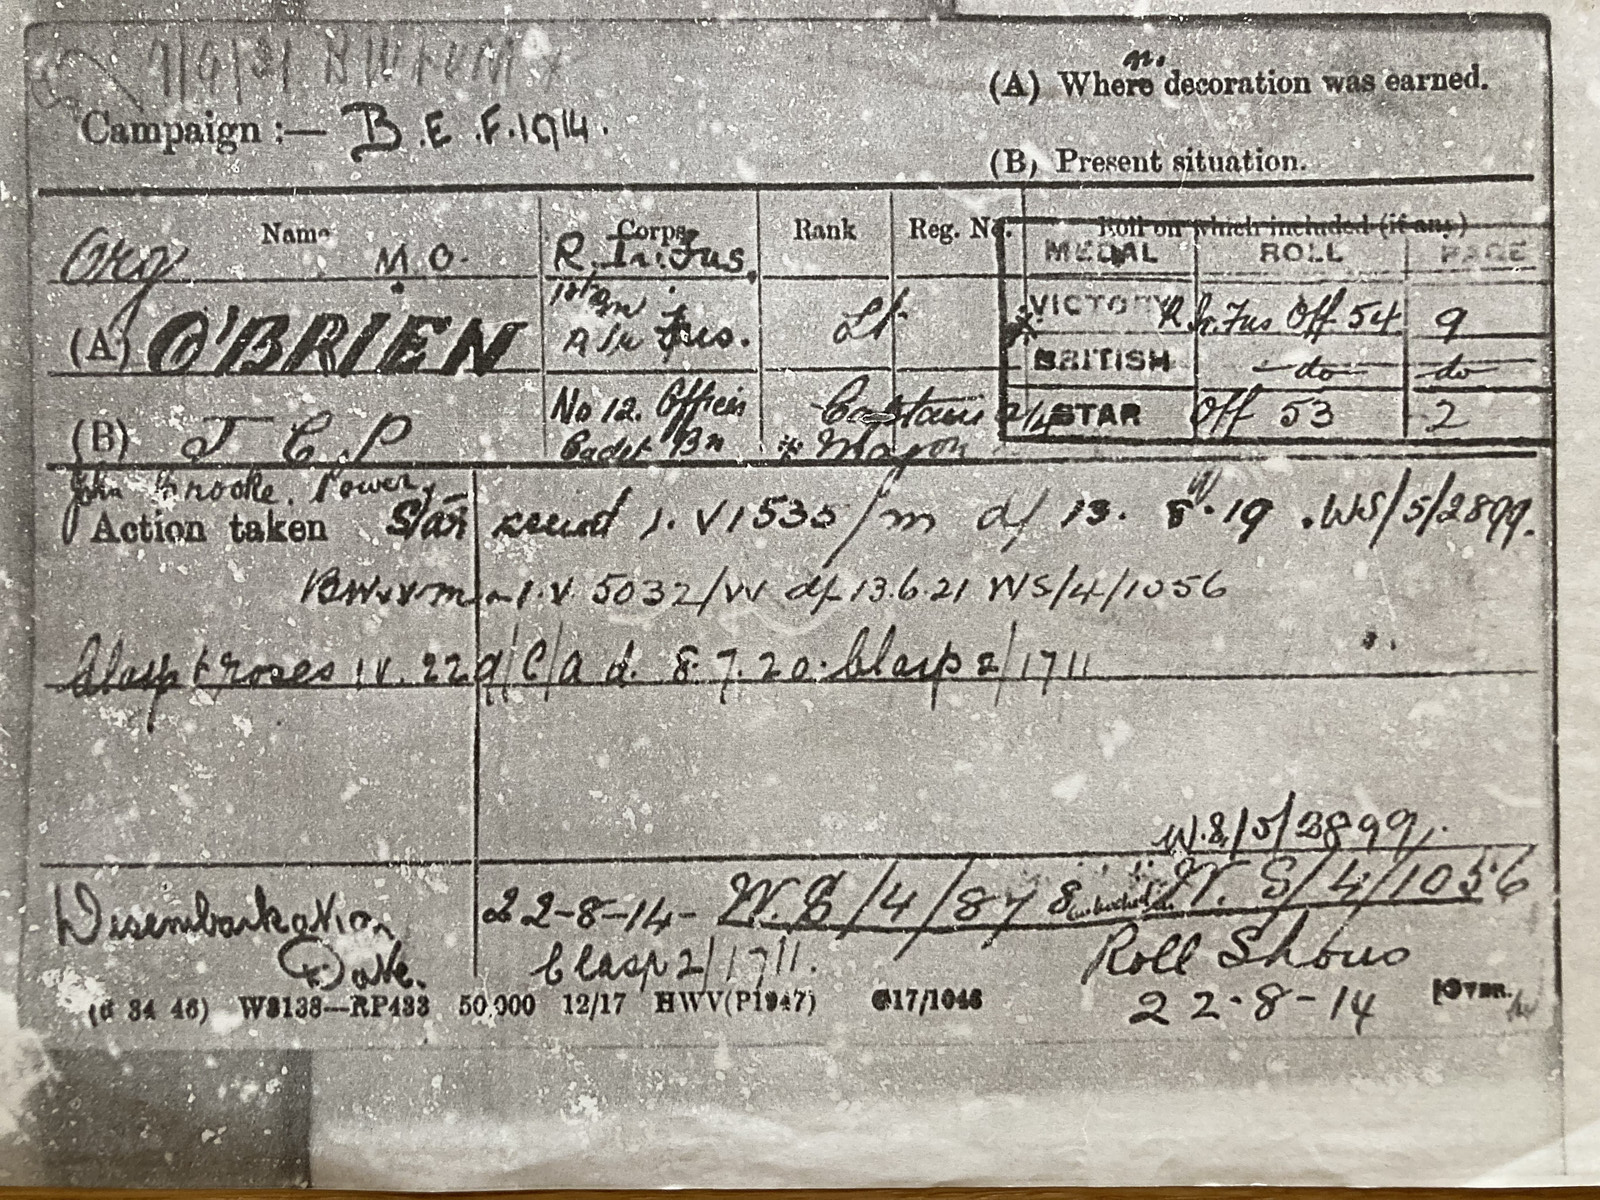 (A) Where decoration was earned.
Campaign :— B.E.F. 1914.
(B) Present situation.
Name Corps. Rank Reg. No. Roll on which included (if any)
MEDAL ROLL PAGE
M.O. R. Ir: Fus.
(A) O'BRIEN 1st R Ir Fus. Lt
VICTORY R. Ir. Fus Off 54 9
BRITISH —do— —do—
(B) J C P No 12. Officers Cadet Bn Captain Major
STAR Off 53 2
John Power
Action taken Star issued I.V 1535/m d/ 13. 8.19 . WS/5/2899.
BW&VM - I.V. 5032/W d/ 13.6.21 WS/4/1056
Clasp & roses I.V. 229/C/A d. 8.7.20. Clasp 2/1711
W.S/5/2899.
Disembarkation Date. 22-8-14- W.S/4/878 W.S/4/1056
Clasp 2/1711. Roll Shows
22-8-14
(6 34 46) W8138—RP433 50,000 12/17 HWV(P1947) G17/1046 [OVER.